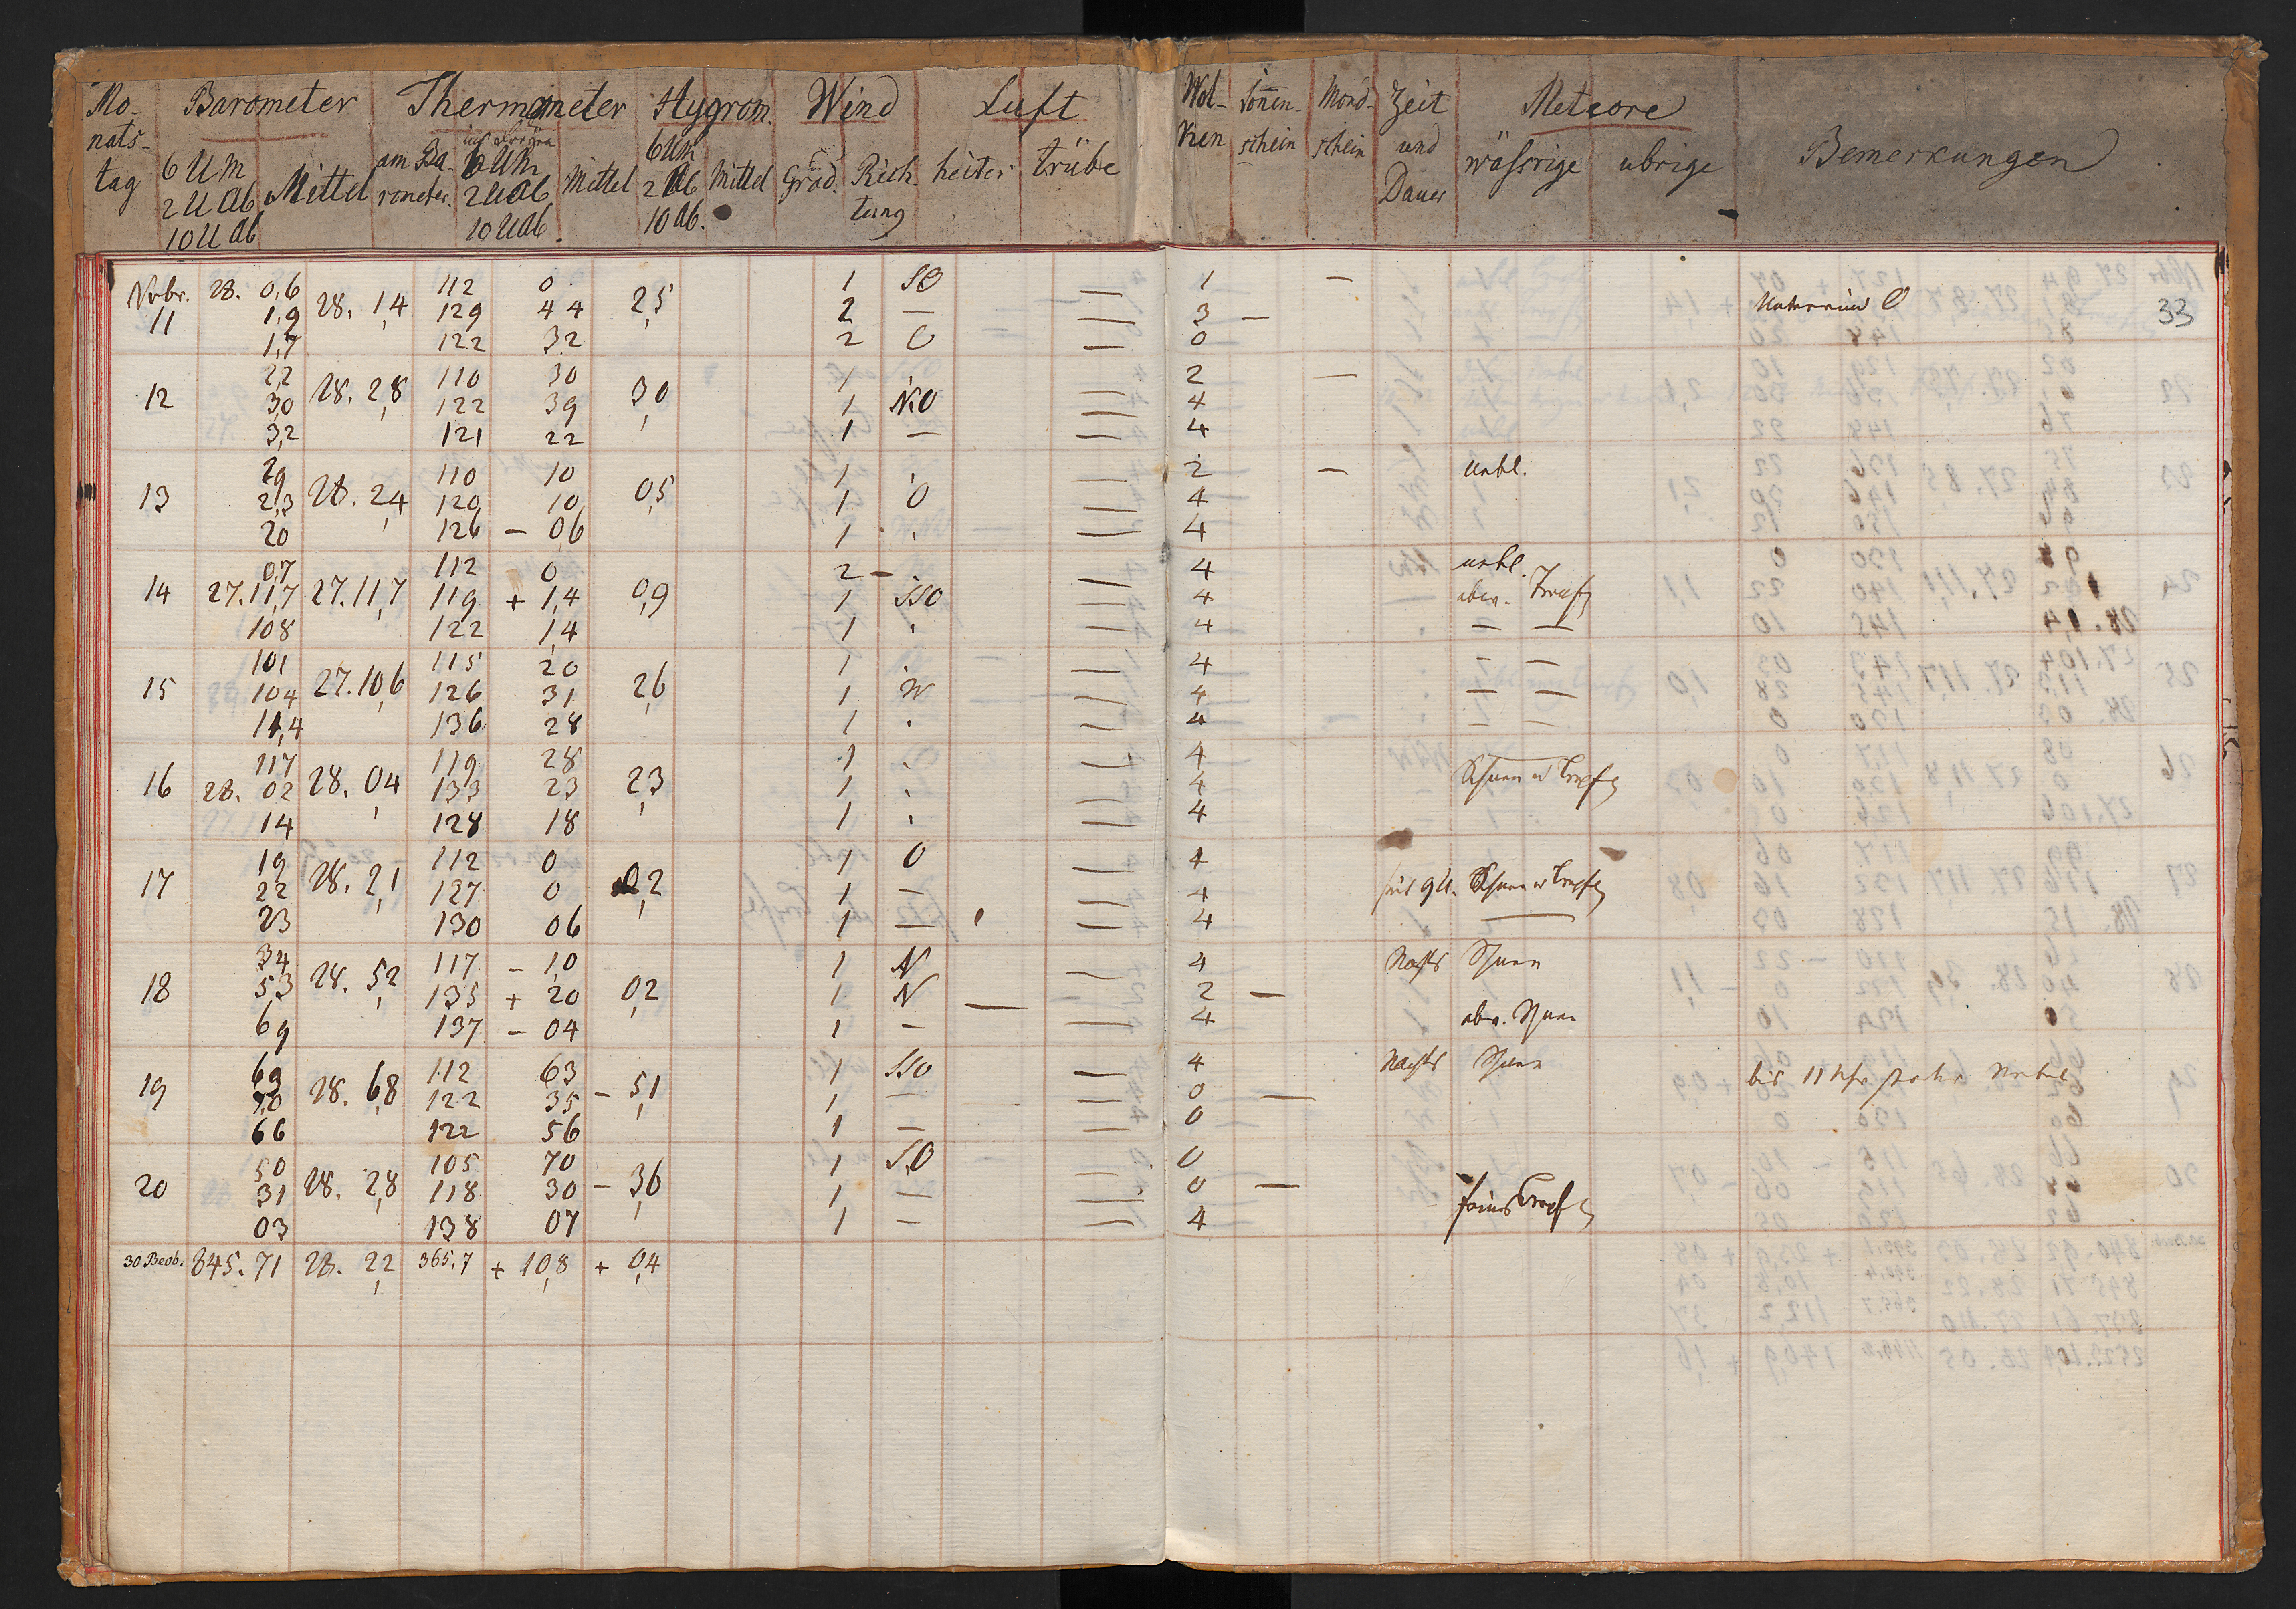 Mo- Barometer Thermometer Hygrom. Wind Luft Wol- Sonnen- Mond- Zeit Meteore Bemerkungen
nats- am Ba- 6 Um 6 Um ken schein schein und wäßrige übrige
tag 6 U M Mittel rometer. 2 U Ab Mittel 2 Ab Mittel Grad. Rich- heiter trübe Dauer
2 U Ab 10 U Ab 10 Ab. tung
10 U Ab
Nvbr. 28. 0,6 112 0 1 SO 1 —
11 1,9 28. 1,4 129 44 2,5 2 — — 3 — 33
1,7 122 32 2 O — 0
2,2 110 30 1 — 2 —
12 3,0 28. 2,8 122 39 3,0 1 NO — 4
3,2 121 22 1 — — 4
2,9 110 10 1 — 2 — nebl.
13 2,3 28. 2,4 120 10 0,5 1 O — 4
20 126 — 06 1 — 4
0,7 112 0 2 — — 4 nebl.
14 27. 11,7 27. 11,7 119 + 1,4 0,9 1 SSO — 4
108 122 1,4 1 — 4 — —
101 115 20 1 — 4 — —
15 104 27. 10,6 126 31 2,6 1 W — 4 — —
11,4 136 28 1 — 4 — —
117 119 28 1 — 4
16 28. 02 28. 0,4 133 23 2,3 1 — 4
14 128 18 1 — 4
19 112 0 1 O — 4
17 22 28. 2,1 127 0 0,2 1 — — 4 9 U.
23 130 06 1 — — 4 —
34 117 — 1,0 1 N — 4 Nachts Schnee
18 53 28. 5,2 135 + 20 0,2 1 N — 2 —
69 137 — 04 1 — — 4 Schnee
69 112 63 1 SSO — 4 Nachts Schnee
19 7,0 28. 6,8 122 35 — 5,1 1 — — 0 — bis 11 Uhr Nebel
66 122 56 1 — — 0
50 105 70 1 SO — 0
20 31 28. 2,8 118 30 — 3,6 1 — — 0 —
03 138 07 1 — — 4
30 Beob. 845. 71 28. 2,2 365,7 + 10,8 + 0,4